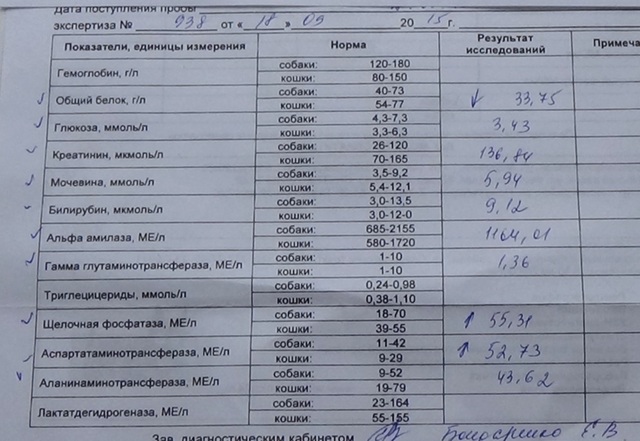 Дата поступления пробы
экспертиза № 938 от « 18 » 09 2015 г.
Показатели, единицы измерения Норма Результат исследований Примеча
Гемоглобин, г/л собаки: 120-180
кошки: 80-150
Общий белок, г/л собаки: 40-73 ↓ 33,75
кошки: 54-77
Глюкоза, ммоль/л собаки: 4,3-7,3 3,43
кошки: 3,3-6,3
Креатинин, мкмоль/л собаки: 26-120 136,84
кошки: 70-165
Мочевина, ммоль/л собаки: 3,5-9,2 5,94
кошки: 5,4-12,1
Билирубин, мкмоль/л собаки: 3,0-13,5 9,12
кошки: 3,0-12-0
Альфа амилаза, МЕ/л собаки: 685-2155 1164,01
кошки: 580-1720
Гамма глутаминотрансфераза, МЕ/л собаки: 1-10 1,36
кошки: 1-10
Триглецицериды, ммоль/л собаки: 0,24-0,98
кошки: 0,38-1,10
Щелочная фосфатаза, МЕ/л собаки: 18-70 ↑ 55,31
кошки: 39-55
Аспартатаминотрансфераза, МЕ/л собаки: 11-42 ↑ 52,73
кошки: 9-29
Аланинаминотрансфераза, МЕ/л собаки: 9-52 43,62
кошки: 19-79
Лактатдегидрогеназа, МЕ/л собаки: 23-164
кошки: 55-155
Зав. диагностическим кабинетом Е.В